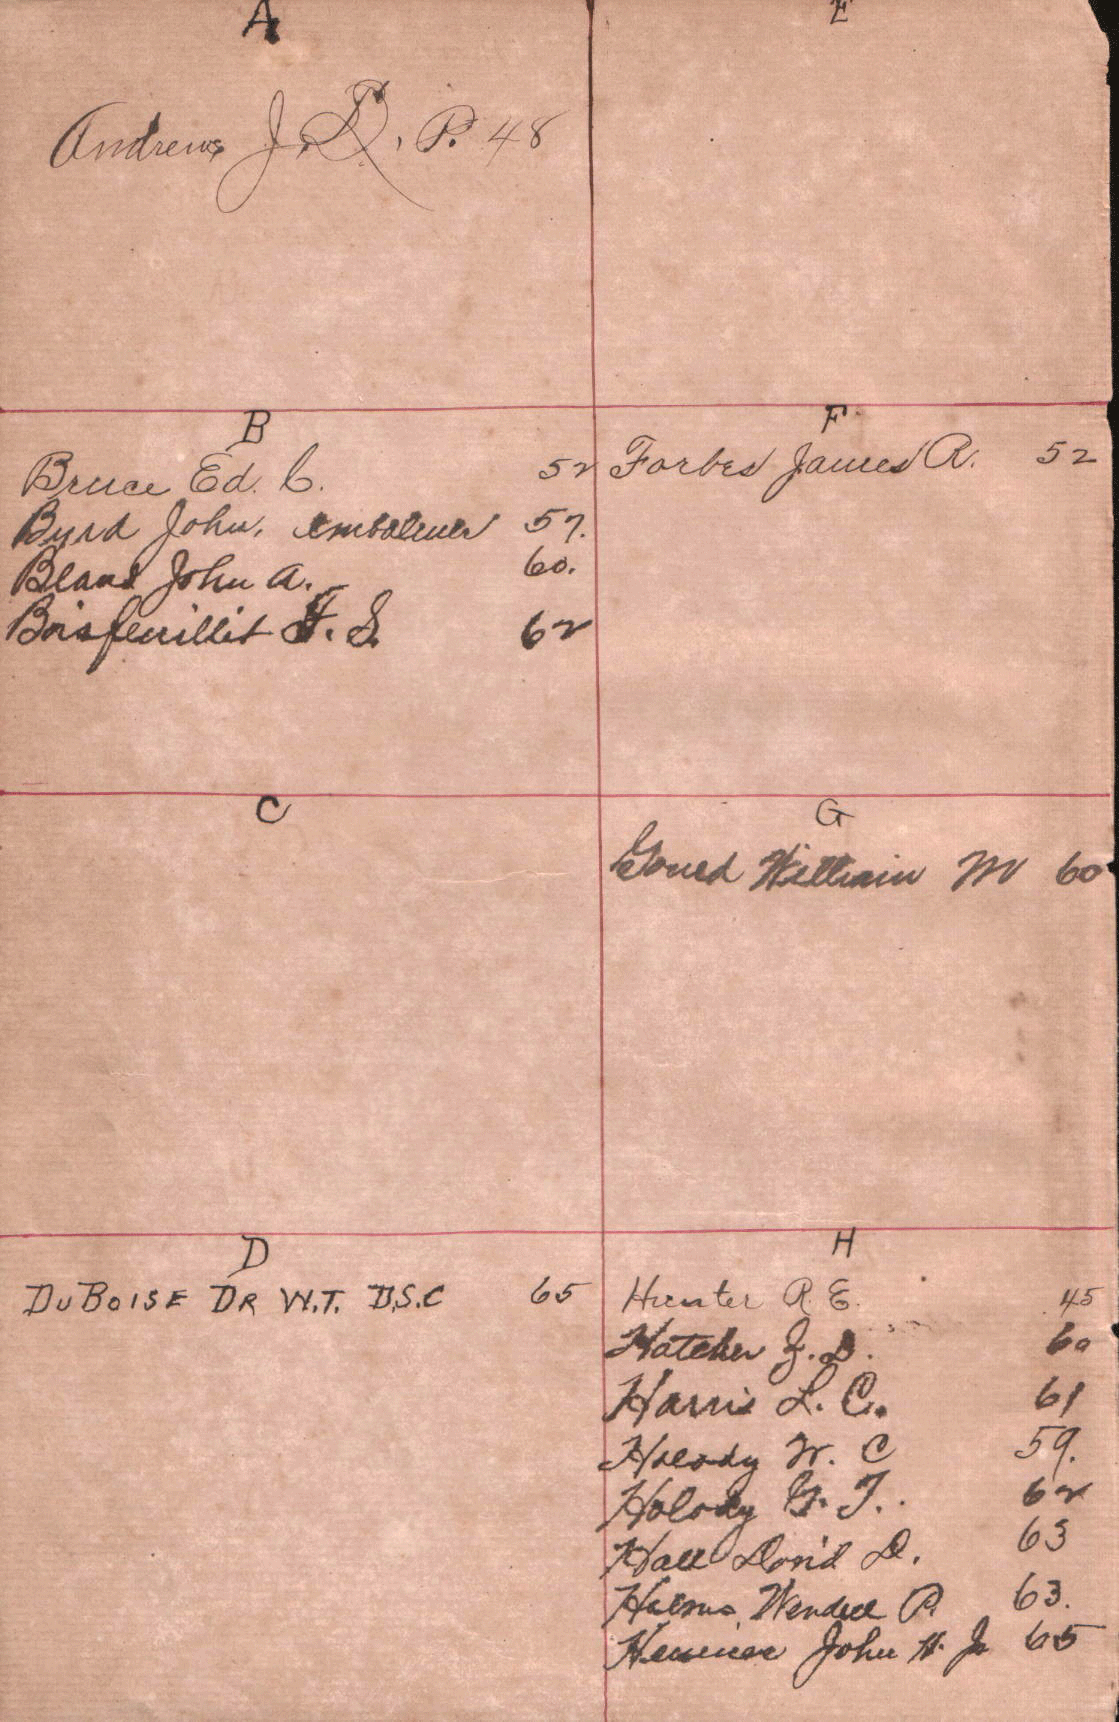 A
Andrews J. D. P. 48
B
Bruce Ed. C. 52
Byrd John. embalmer 57.
Bland John A. 60.
Boisfeuillet J. S. 62
C
D
DuBoise Dr W.T. D.S.C 65
E
F
Forbes James R. 52
G
Gould William M 60
H
Hunter R. E. 45
Hatcher J. D. 60
Harris L. C. 61
W. C 59.
Holody G. T. 62
Hall David D. 63
Wendell P. 63.
John H. Jr 65